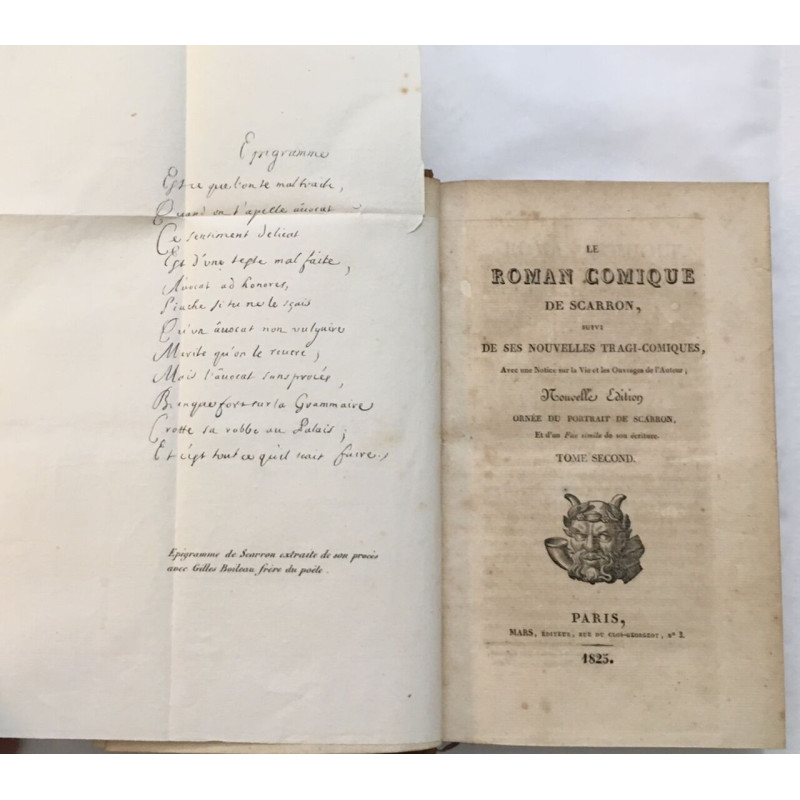 Epigramme
Est ce que l'on te maltraicte,
Quand on t'apelle auocat
Ce sentiment delicat
Est d'une teste mal faite,
Auocat ad honores,
Sache si tu ne le sçais
Qu'un auocat non vulgaire
Merite qu'on le reuere,
Mais l'auocat sans procés,
Bien que fort sur la Grammaire
Crotte sa robbe au Palais;
Et c'est tout ce qu'il scait faire.
Epigramme de Scarron extraite de son procès
avec Gilles Boileau frère du poète.
LE
ROMAN COMIQUE
DE SCARRON,
SUIVI
DE SES NOUVELLES TRAGI-COMIQUES,
Avec une Notice sur la Vie et les Ouvrages de l'Auteur;
Nouvelle Edition
ORNÉE DU PORTRAIT DE SCARRON,
Et d'un Fac simile de son écriture.
TOME SECOND.
PARIS,
MARS, ÉDITEUR, RUE DU CLOS-GEORGEOT, N° 2.
1825.